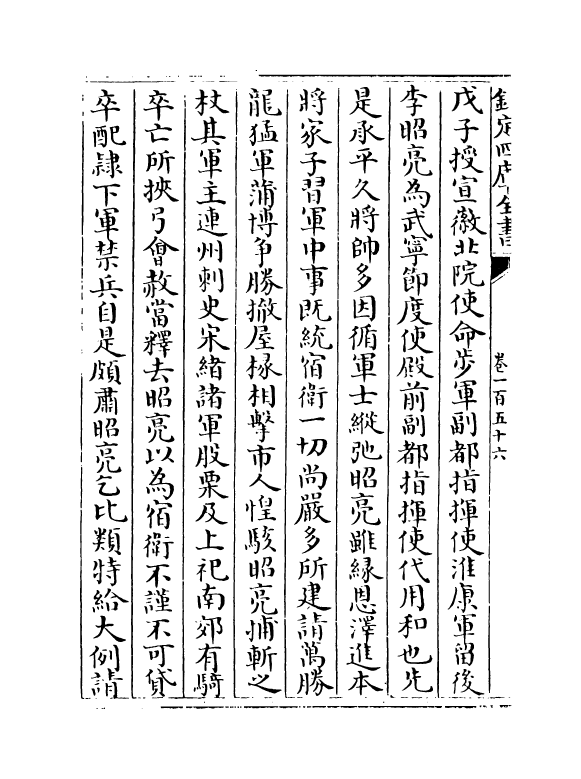 欽定四庫全書
卷一百五十六
戊子授宣徽北院使命步軍副都指揮使淮康軍留後
李昭亮為武寧節度使殿前副都指揮使代用和也先
是承平久將帥多因循軍士縱弛昭亮雖緣恩澤進本
將家子習軍中事既統宿衛一切尚嚴多所建請萬勝
龍猛軍蒱博爭勝撤屋椽相擊市人惶駭昭亮捕斬之
杖其軍主連州刺史宋緒諸軍股栗及上祀南郊有騎
卒亡所挾弓會赦當釋去昭亮以為宿衛不謹不可貸
卒配隷下軍禁兵自是頗肅昭亮乞比類特給大例請